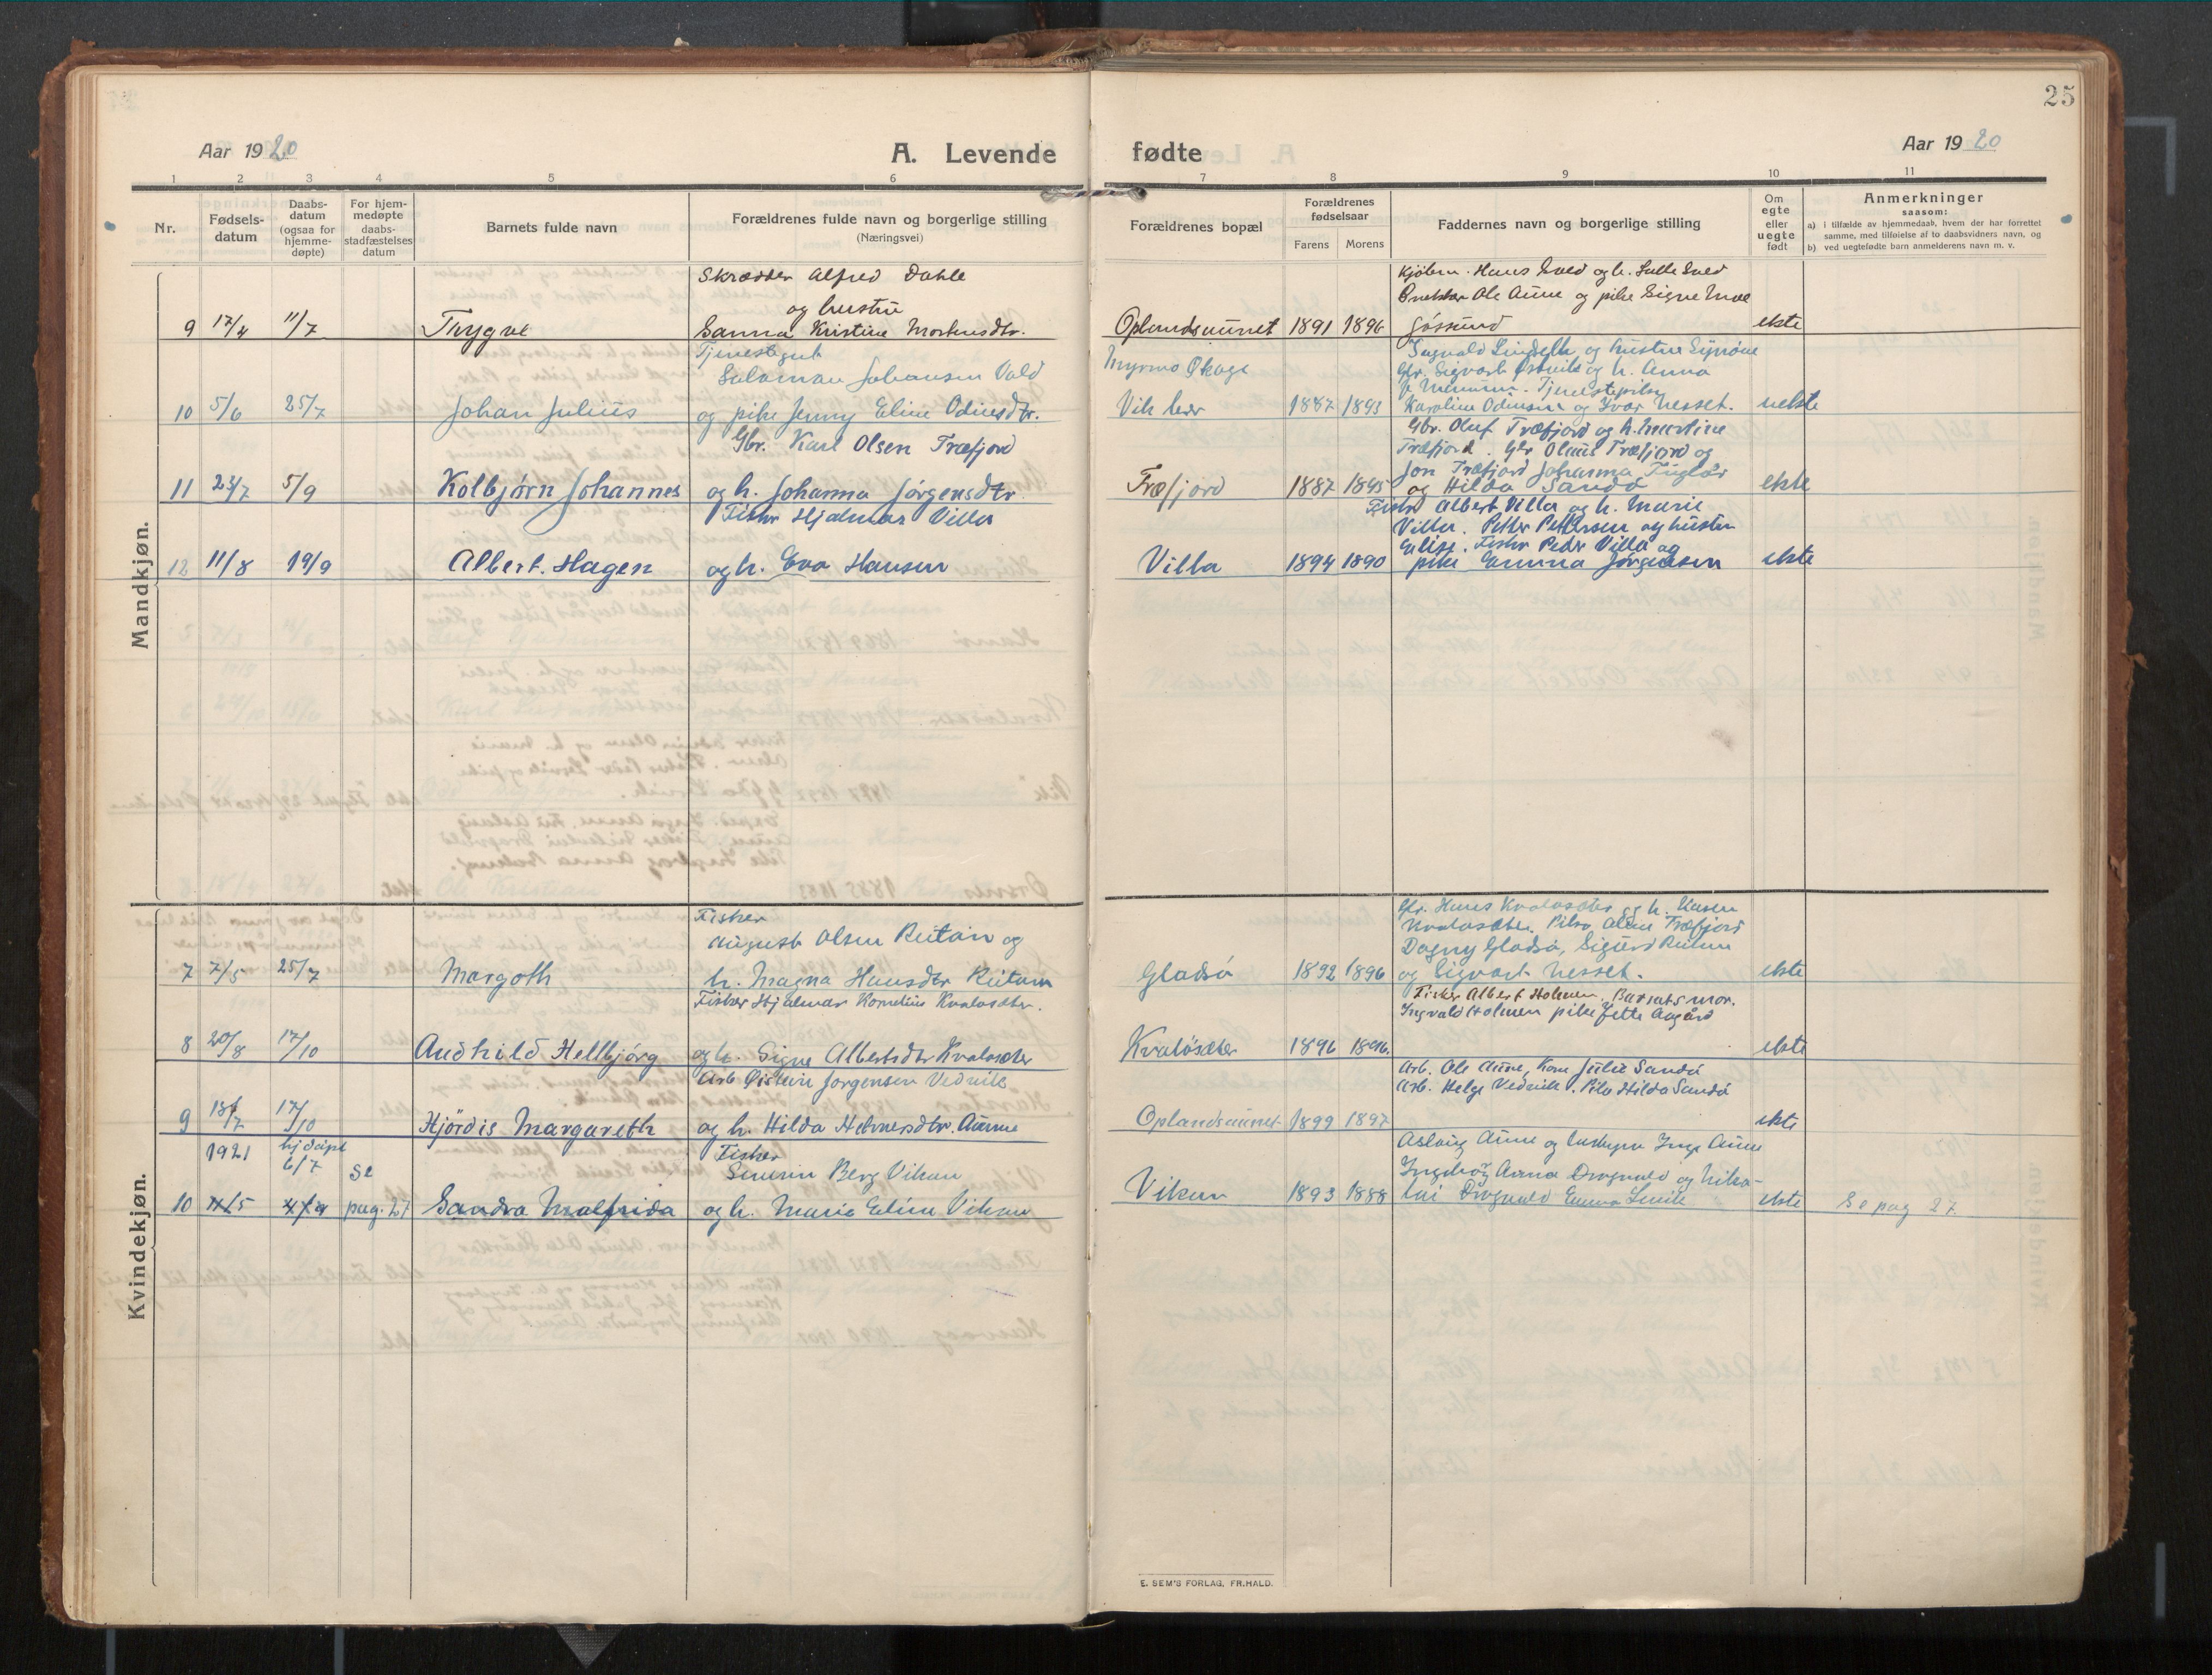 25
Aar 1920
A. Levende
fødte
Aar 1920
1 2 3 4 5 6 7 8 9 10 11
Nr.
Fødsels-
datum
Daabs-
datum
(ogsaa for
hjemme-
døpte)
For hjem-
medøpte
daabs-
stadfæstelses
datum
Barnets fulde navn
Forældrenes fulde navn og borgerlige stilling
(Næringsvei)
Forældrenes bopæl
Forældrenes
fødselsaar
Farens Morens
Faddernes navn og borgerlige stilling
Om
egte
eller
uegte
født
Anmerkninger
saasom:
a) i tilfælde av hjemmedaab, hvem der har forrettet
samme, med tilføielse af to daabsvidners navn, og
b) ved uegtefødte barn anmelderens navn m. v.
Mandkjøn.
Skrædder Alfred Dahle
og hustru
9 17/4 11/7 Trygve Sanna Kristine Dtr.
Hans og h.
Ole Aune og pike Signe Moe
Oplandsaunet 1891 1896 Jössund ekte
Tjenestegut
Salomon Johansen Vold
10 5/6 25/7 Johan Julius og pike Jenny Eline Odinsdtr.
Myrmo Skage
Lindseth og hustru Synöve
Gbr. Sigvart og h. Anna
Tjenestepike
Vik 1887 1893 Karoline Odinsen og Ivar Nesset. uekte
Gbr. Karl Olsen Træfjord
11 23/7 5/9 Kolbjørn Johannes og h. Johanna Jørgensdtr.
Gbr. Oluf Træfjord og h. Martine
Træfjord. Gbr Olaus Træfjord og
Jon Træfjord Johanna
Træfjord 1887 1895 og Hilda Sandö ekte
Fisker Hjalmar Villa
12 11/8 19/9 Albert. Hagen og h. Eva Hansen
Fisker Albert Villa og h. Marie
Villa. Petter Pettersen og hustru
Elise. Fisker Peder Villa og
Villa 1894 1890 pike Emma Jørgensen ekte
Kvindekjøn.
Fisker
August Olsen Reitan og
7 7/5 25/7 Margoth h. Magna Hansdtr Reitan
Gbr. Hans Kvalosæter og h. Karen
Kvalosæter. Pike Aline Træfjord
Dagny Gladsö, Sigurd Reitan
Gladsö 1892 1896 og Sigvart Nesset. ekte
Fisker Hjalmar Kornelius Kvalosæter.
8 20/8 17/10 Audhild Hellbjörg og h. Signe Albertsdtr Kvalosæter
Fisker Albert Holmen. Barnets mor.
Ingvald Holmen pike Jette Aagård
Kvalösæter 1896 1896. ekte
Arb Øistein Jorgensen Vedvik
9 18/7 17/10 Hjördis Margareth og h. Hilda Helmersdtr. Aunne
Arb. Ole Aune, Kone Julie Sandö
Arb. Helge Vedvik. Pike Hilda Sandö
Oplandsaunet 1899 1897 ekte
1921 hjdöpt
6/7 Se
Fisker
Simen Berg Vikan
10 pag. 27 Sandra Malfrida og h. Marie Eline Vikan
Aslaug Aune og Inge Aune
Ingeborg Anna Dragnald og
Vikan 1893 1888 Dragnald Emma ekte Se pag 27.
E. SEM'S FORLAG, FR.HALD.